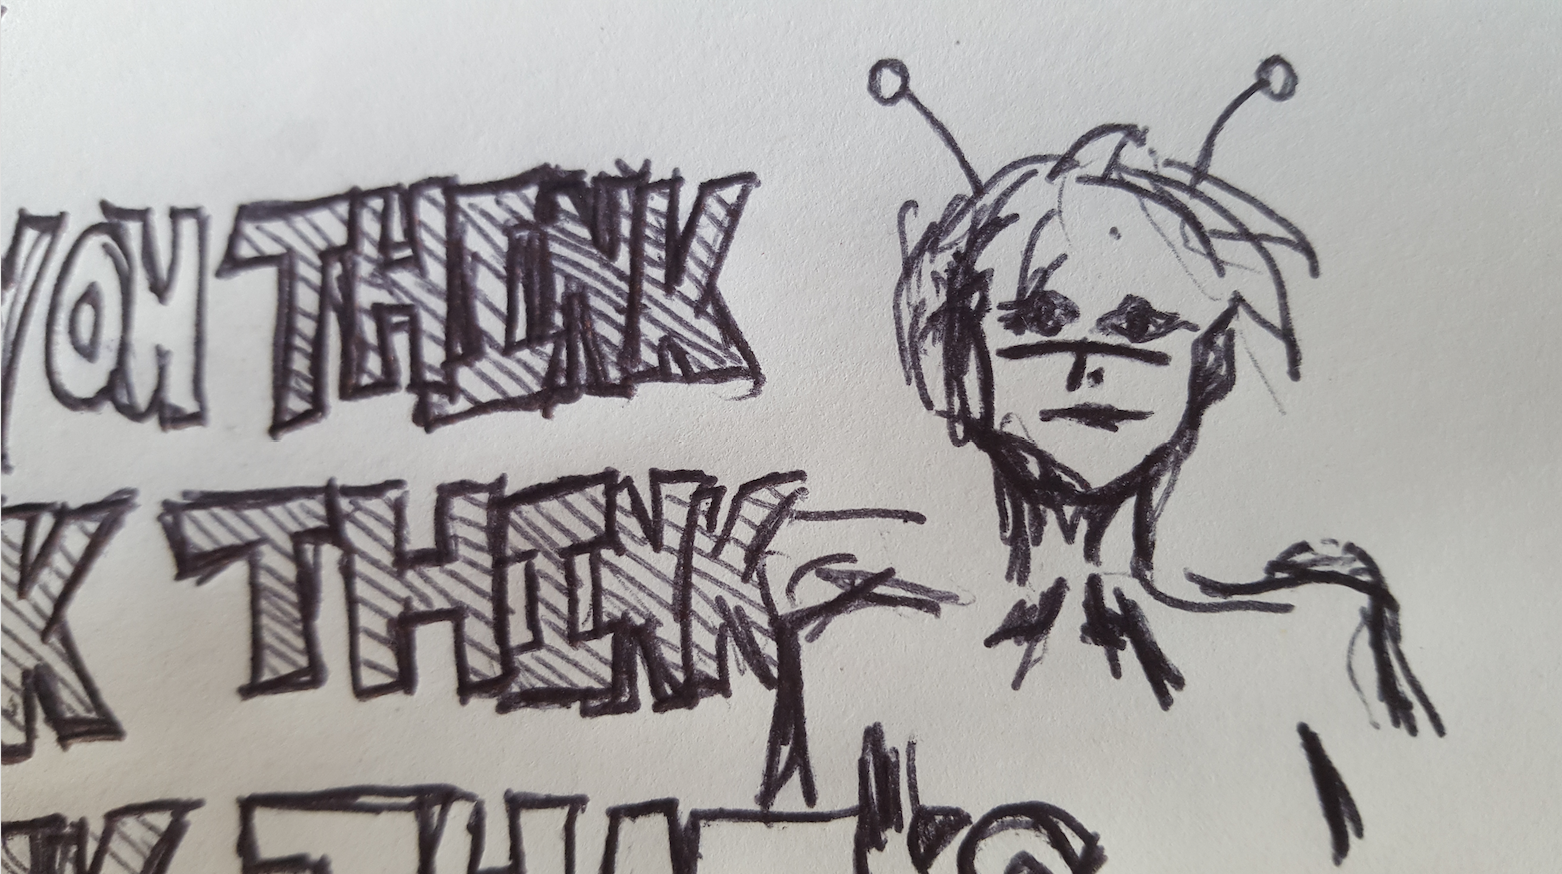 YOU THINK
K THINK
K THAT